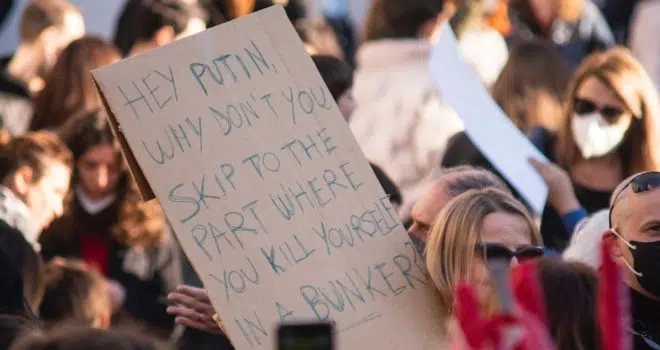 HEY PUTIN,
WHY DON'T YOU
SKIP TO THE
PART WHERE
YOU KILL YOURSELF
IN A BUNKER?